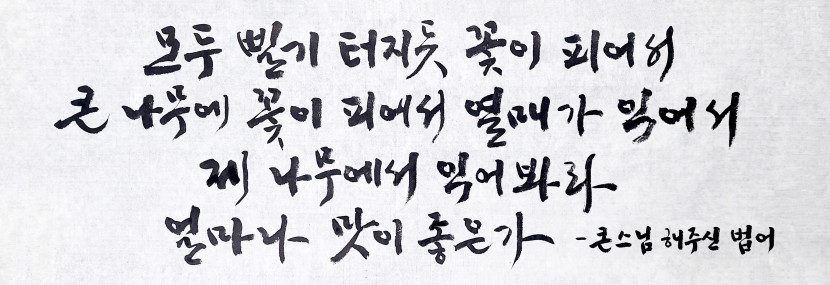 모두 벌기 터지듯 꽃이 피어서
큰 나무에 꽃이 피어서 열매가 익어서
제 나무에서 익어봐라
얼마나 맛이 좋은가 -큰스님 해주신 법어